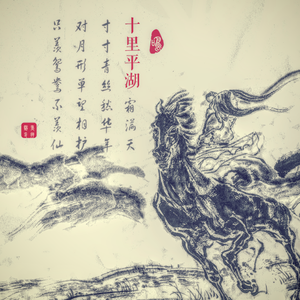 十里平湖 霜满天
寸寸青丝愁华年
对月形单望相护
只羡鸳鸯不羡仙